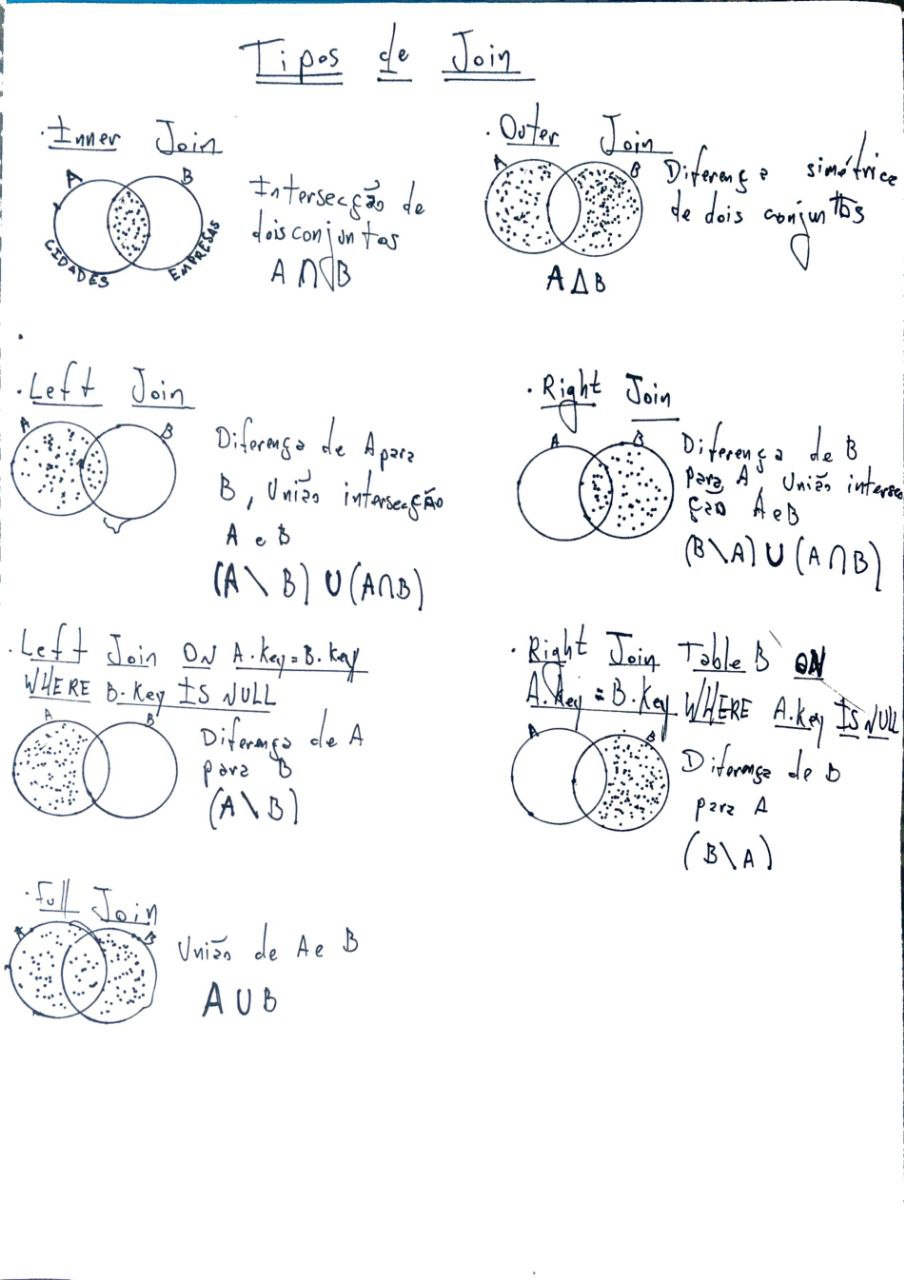 Tipos de Join
· Inner Join
A
B
CIDADES
EMPRESAS
Intersecção de
dois conjuntos
A ∩ B
· Outer Join
A
B
Diferença simétrica
de dois conjuntos
A Δ B
· Left Join
A
B
Diferença de A para
B, União intersecção
A e B
(A \ B) ∪ (A∩B)
· Right Join
A
B
Diferença de B
para A, União intersec
ção A e B
(B \ A) ∪ (A ∩ B)
· Left Join ON A.Key=B.Key
WHERE B.Key IS NULL
A
B
Diferença de A
para B
(A \ B)
· Right Join Table B ON
A.Key = B.Key WHERE A.Key IS NULL
A
B
Diferença de B
para A
(B \ A)
· Full Join
A
B
União de A e B
A ∪ B